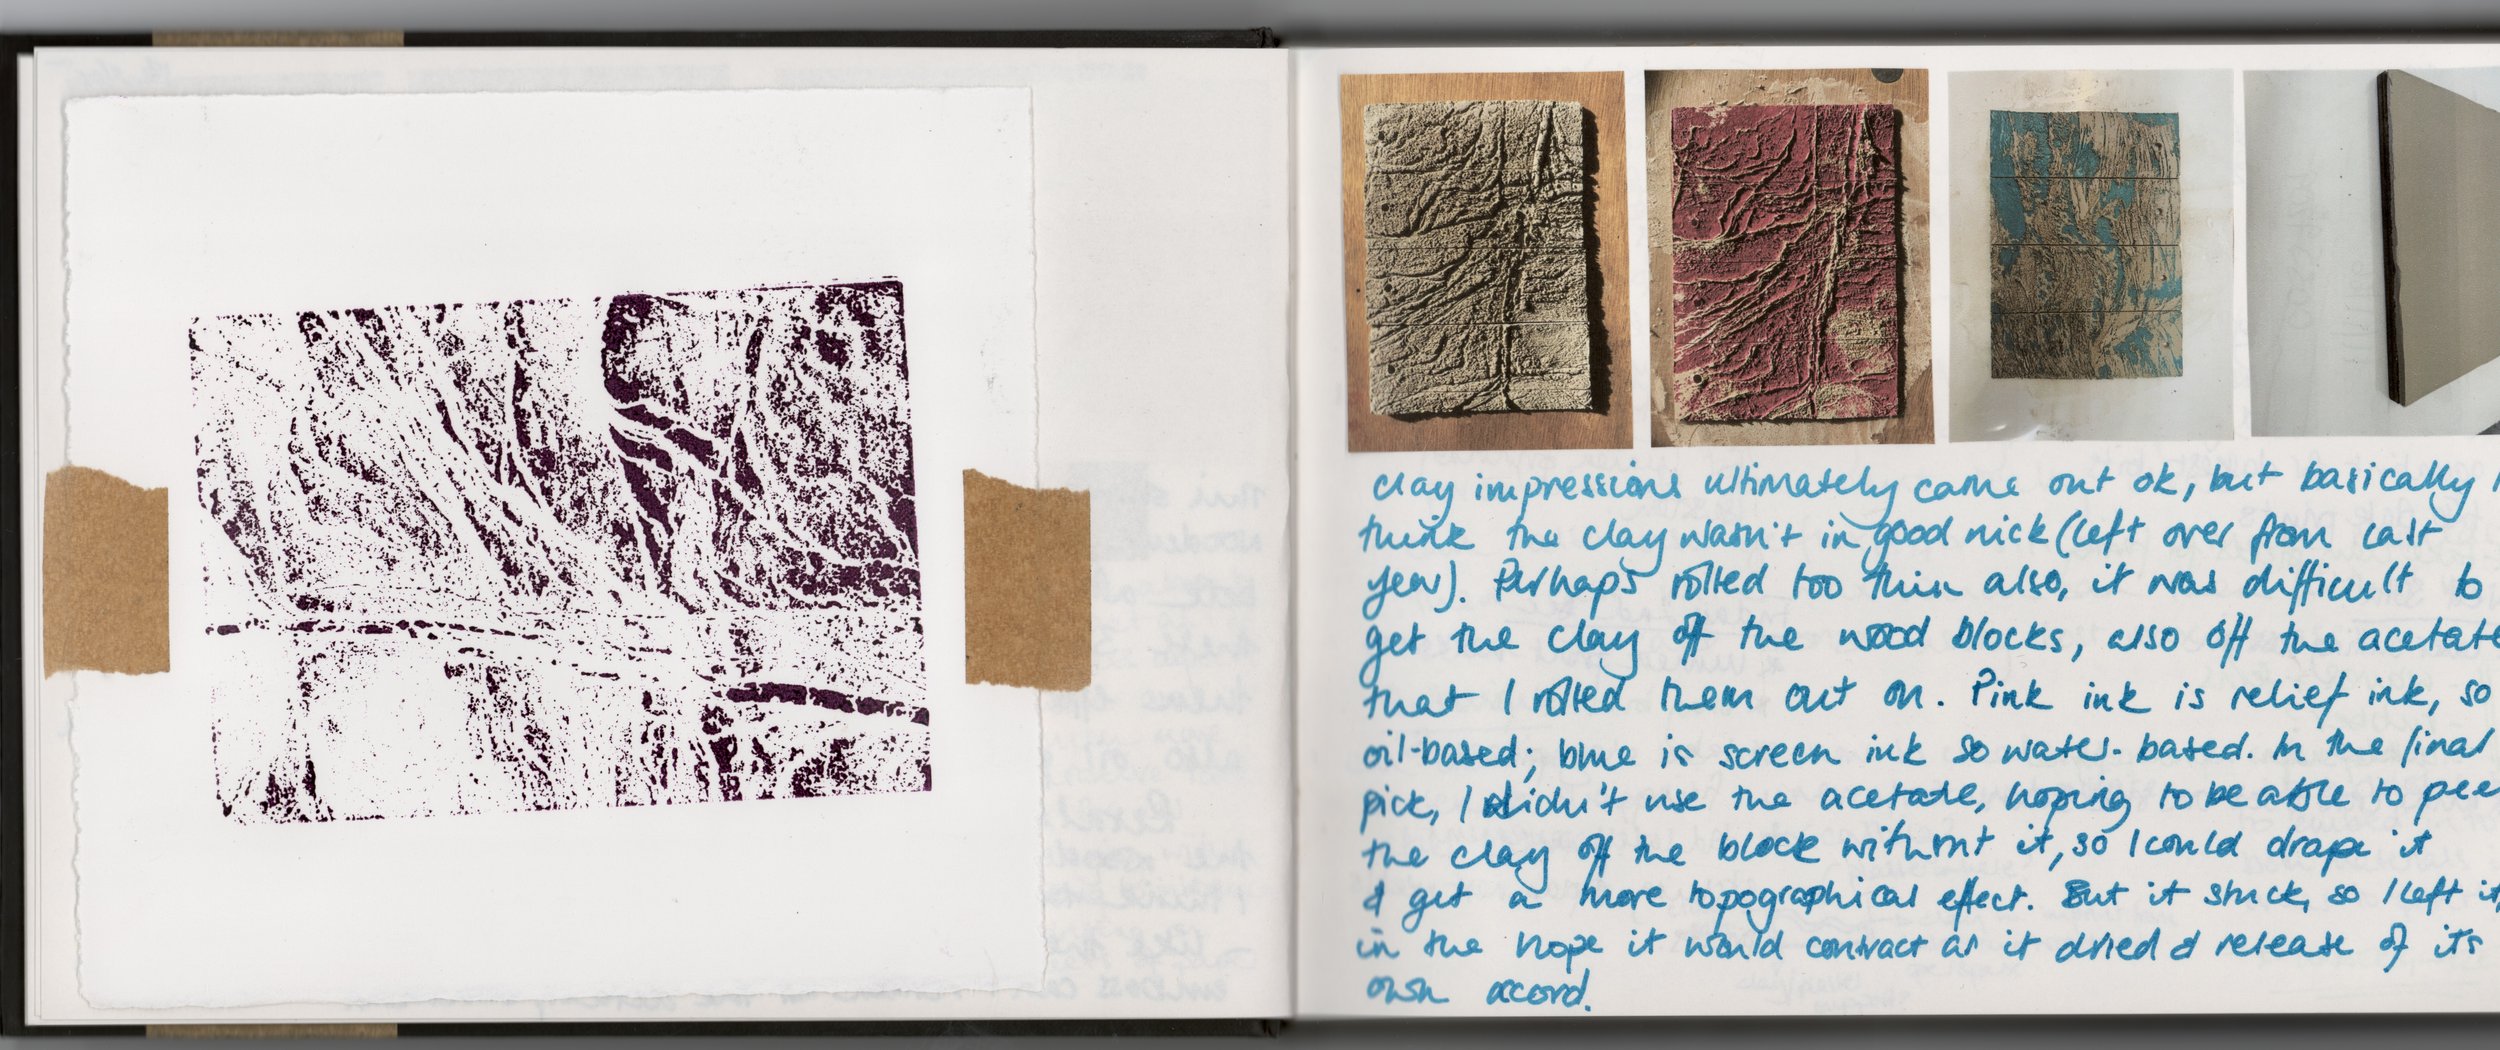 clay impressions ultimately came out ok, but basically I
think the clay wasn't in good nick (left over from last
year). Perhaps rolled too thin also, it was difficult to
get the clay off the wood blocks, also off the acetate
that I rolled them out on. Pink ink is relief ink, so
oil-based; blue is screen ink so water-based. In the final
pick, I didn't use the acetate, hoping to be able to pee
the clay off the block without it, so I could drape it
& get a more topographical effect. But it stuck, so I left it,
in the hope it would contract as it dried & release of its
own accord.